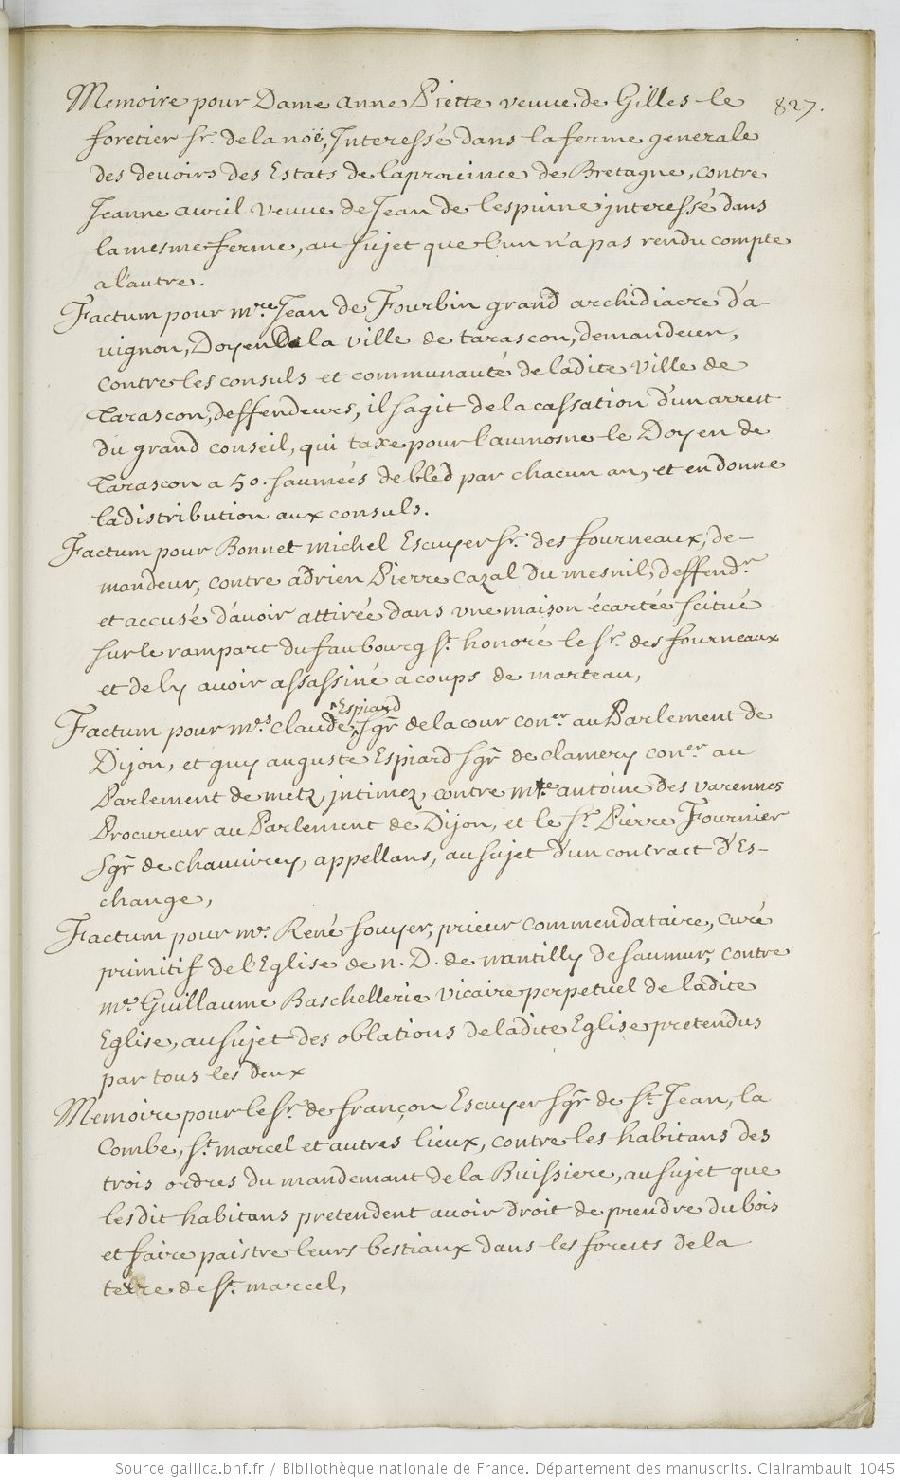 827.
Memoire pour Dame anne Piette veuve de Gilles le
foretier sr. de la noë, Interessé dans la ferme generale
des devoirs des Estats de la province de Bretagne, contre
Jeanne avril veuve de Jean de lespinne interessé dans
la mesme ferme, au sujet que l'un n'a pas rendu compte
a l'autre.
Factum pour mre Jean de Fourbin grand archidiacre d'a-
vignon, Doyen de la ville de tarascon, demandeur,
contre les consuls et communauté de ladite ville de
Tarascon, deffendeurs, il s'agit de la cassation d'un arrest
du grand conseil, qui taxe pour l'aumosne le Doyen de
Tarascon a 50. saumées de bled par chacun an, et en donne
la distribution aux consuls.
Factum pour Bonnet michel Escuyer sr. des fourneaux, de-
mandeur, contre adrien Pierre cazal du mesnil, deffendr
et accusé d'avoir attirée dans une maison écartée scitué
sur le rampart du faubourg st. honoré le sr. des fourneaux
et de ly avoir assassiné a coups de marteau,
Factum pour mrs. claude Espiard sgr de la cour coner au Parlement de
Dijon, et guy auguste Espiard sgr de clamery coner au
Parlement de metz, intimez, contre mte antoine des varennes
Procureur au Parlement de Dijon, et le sr. Pierre Fournier
sgr de chauvirey, appellans, au sujet d'un contract d'Es-
change,
Factum pour mr. René souyer, prieur commendataire, curé
primitif de l'Eglise de n. D. de nantilly de saumur, contre
me Guillaume Baschellerie vicaire perpetuel de ladite
Eglise, au sujet des oblations de ladite Eglise pretendus
par tous les deux
Memoire pour le sr. de françon Escuyer sgr de st. Jean, la
Combe, st. marcel et autres lieux, contre les habitans des
trois ordres du mandemant de la Buissiere, au sujet que
lesdit habitans pretendent avoir droit de prendre du bois
et faire paistre leurs bestiaux dans les forests de la
terre de st. marcel,
Source gallica.bnf.fr / Bibliothèque nationale de France. Département des manuscrits. Clairambault 1045